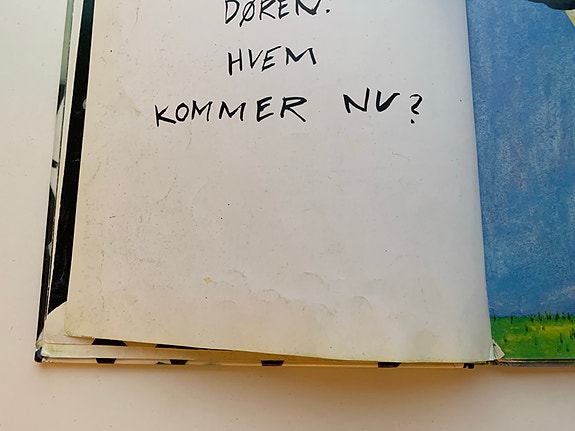 DØREN.
HVEM
KOMMER NU?